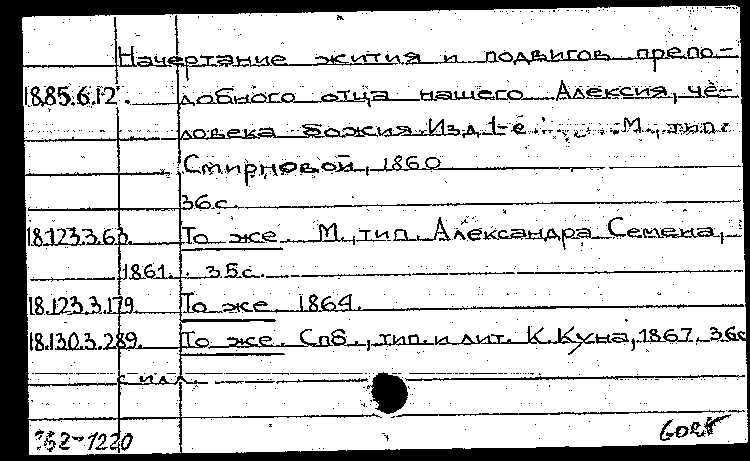 Начертание жития и подвигов препо-
18.85.6.12. добного отца нашего Алексия, че-
ловека божия. Изд. 1-е М., тип.
Смирновой, 1860
36с.
18.123.3.63. То же. М., тип. Александра Семена,
1861. 35с.
18.123.3.179. То же. 1864.
18.130.3.289. То же. Спб., тип. и лит. К. Куна, 1867. 36с
с илл.
62-1220